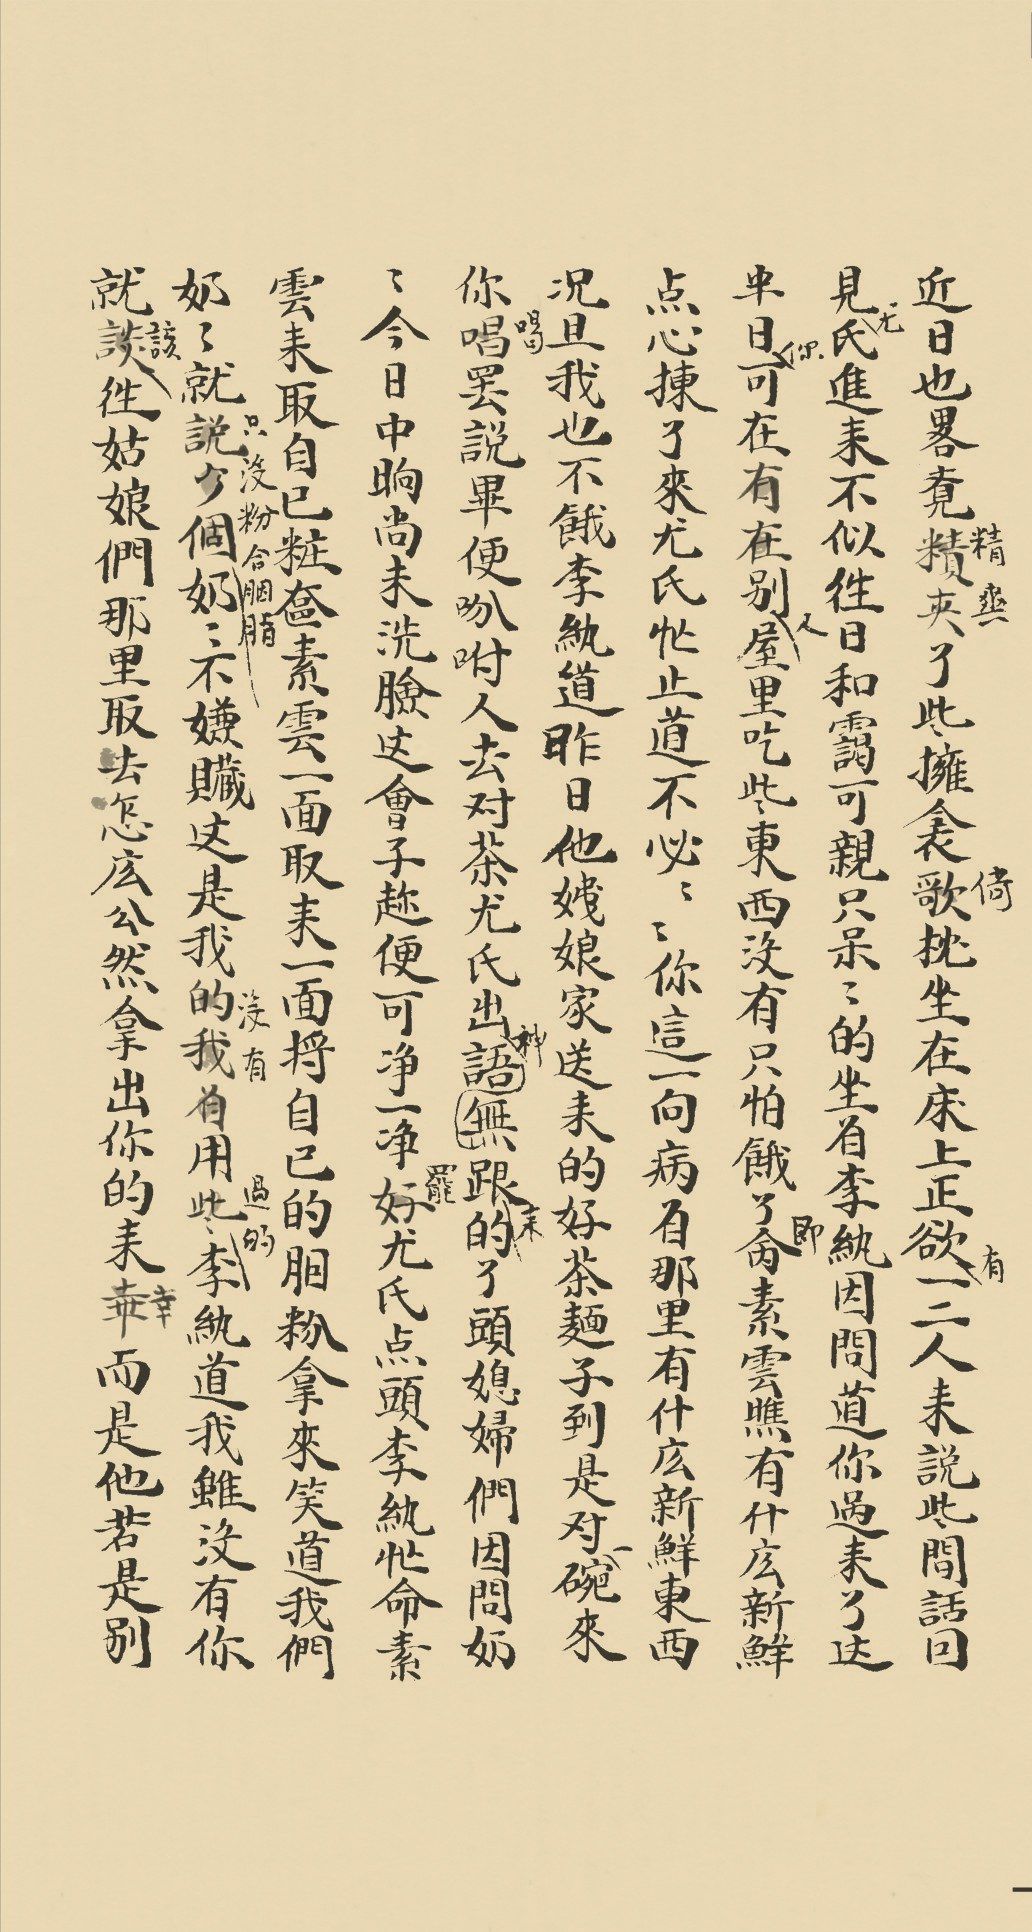 近日也畧覺精爽了些擁衾欹枕坐在床上正欲一二人來説些閒話囙
見尤氏進来不似徃日和靄可親只呆〻的坐着李紈因問道你過来了这
半日你可在有在别屋里吃些東西没有只怕餓了即命素雲瞧有什庅新鮮
点心揀了來尤氏忙止道不必〻〻你這一向病着那里有什庅新鮮東西
况且我也不餓李紈道昨日他姨娘家送来的好茶麺子到是对一碗來
你喝罢説畢便吩咐人去对茶尤氏出神無語跟来的丫頭媳婦們因問奶
〻今日中晌尚未洗臉这會子趂便可净一净罷尤氏点頭李紈忙命素
雲来取自已粧奩素雲一面取来一面将自已的胭粉拿來笑道我們
奶〻就只没粉合胭脂奶〻不嫌臟这是我的没有用過的李紈道我雖没有你
就該徃姑娘們那里取去怎庅公然拿出你的来幸而是他若是别